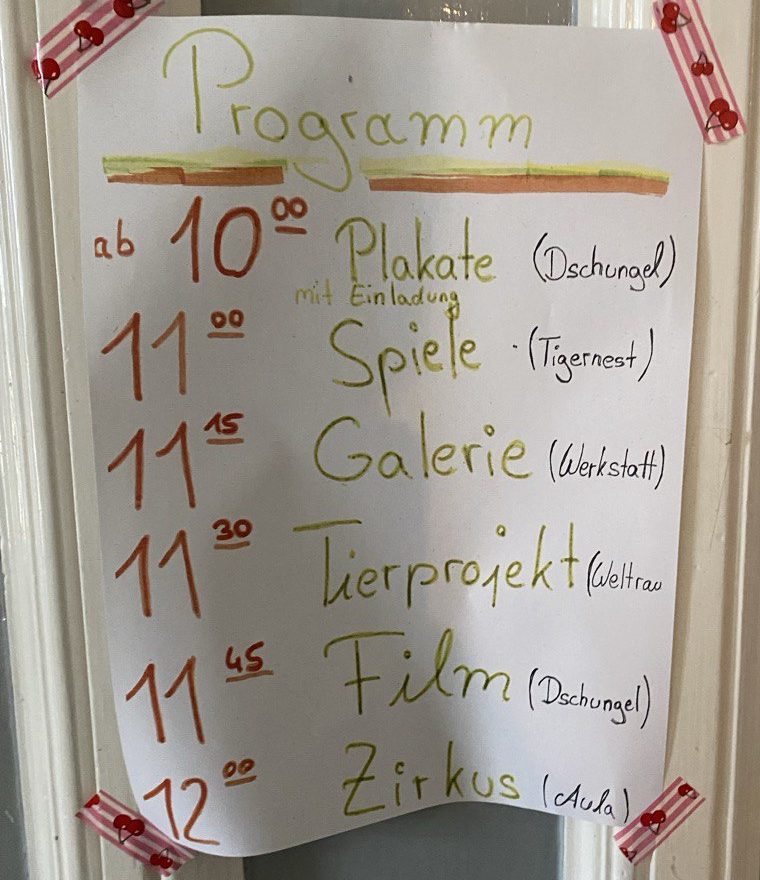 Programm
ab 10 00 Plakate (Dschungel)
mit Einladung
11 00 Spiele (Tigernest)
11 15 Galerie (Werkstatt)
11 30 Tierprojekt (Weltrau
11 45 Film (Dschungel)
12 00 Zirkus (Aula)